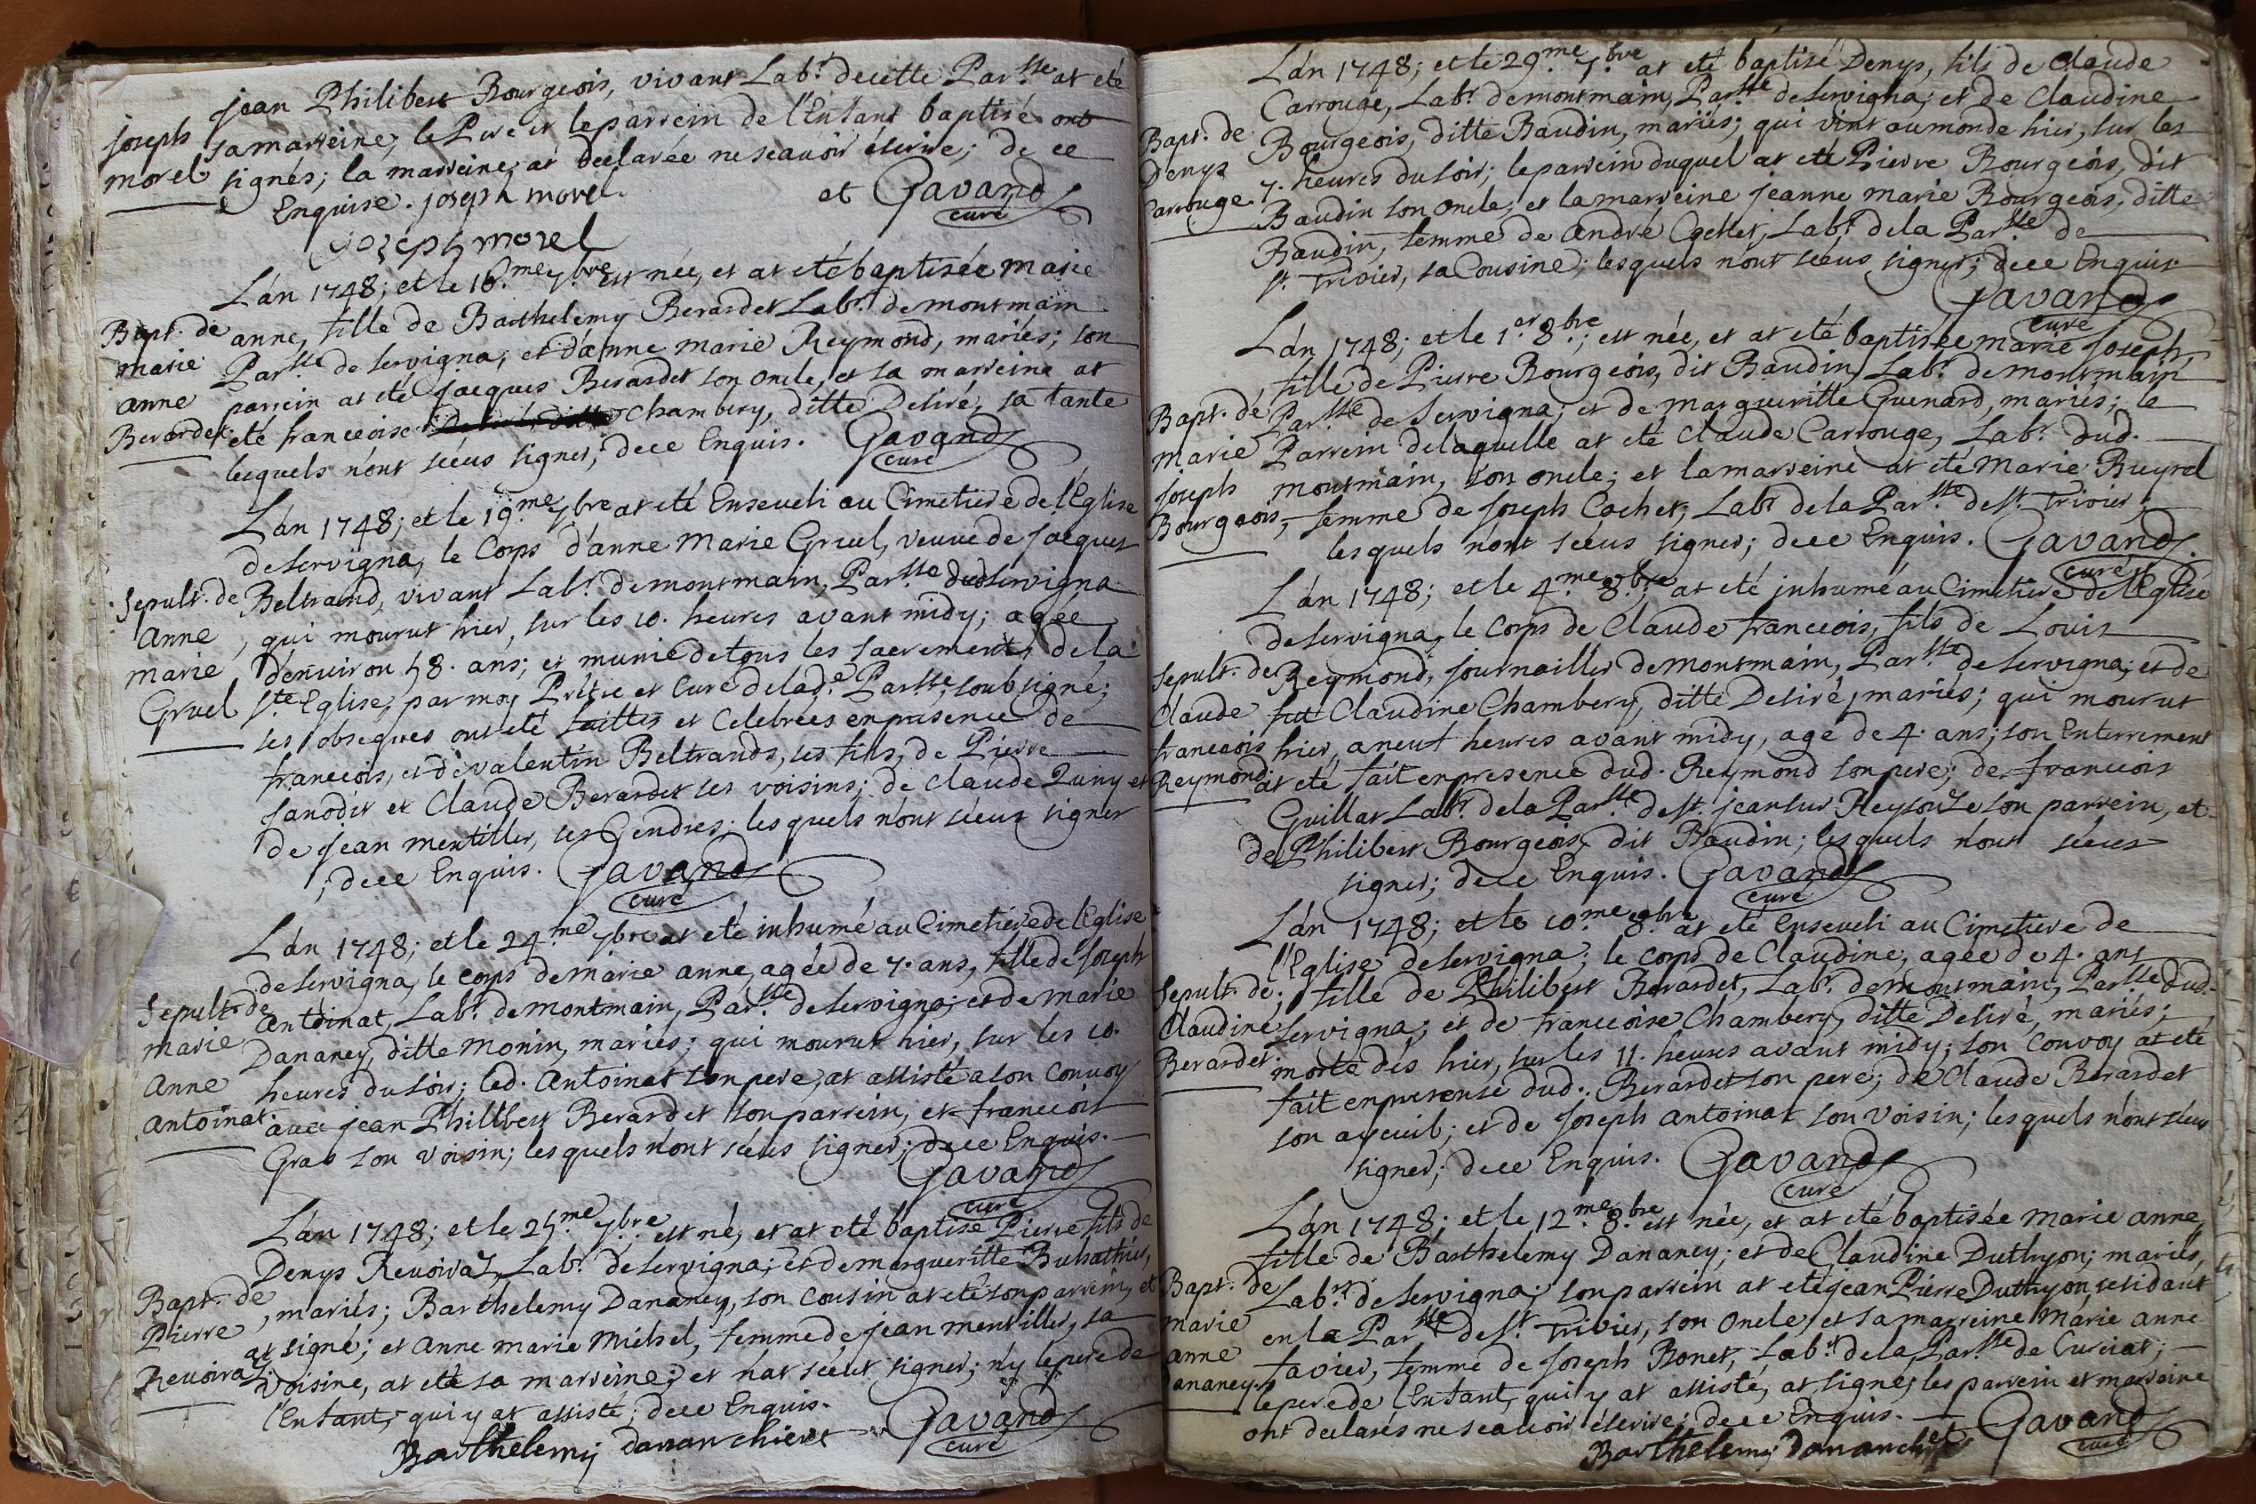 jean Philibert Bourgeois, vivant Labr. decette Parsse at eté
joseph
morel
sa marreine; le Pere et le parrein de l'Enfant baptisé ont
signés; la marreine at declarée ne scavoir éscrire; de ce
Enquise. joseph morel.
et Gavand
curé
Joseph morel
Bapt. de
marie
anne
Berardet
L'án 1748; et le 16.me 7.bre est née, et at eté baptisée marie
anne, fille de Barthelemy Berardet Labr. de montmain
Parsse de servigna, et d'anne marie Reymond, mariés; son
parrein at eté jacques Berardet son oncle, et sa marreine at
eté franceoise chambery, ditte Desiré, sa tante
lesquels n'ont sceus signer; de ce Enquis. Gavand
curé
Sepult. de
Anne
marie
Gruel
L'án 1748; et le 19.me 7bre at eté Enseveli au Cimetiere de l'Eglise
de servigna, le Corps d'anne Marie Gruel, veuve de Jacques
Beltrand, vivant Labr. de montmain, Parsse dud servigna
, qui mourut hier, sur les 10. heures avant midy; agée
d'environ 58. ans; et munie de tous les sacrements de la
ste Eglise, par moy Prêtre et Curé delade. Parsse, soubsigné;
ses obseques ont eté faittes et celebrées en presence de
franceois, et de valentin Beltrands, ses fils, de Pierre
Janodit et Claude Berardet ses voisins; de Claude Quiny et
de jean mentiller, ses Gendres; lesquels n'ont sceus signer
; de ce Enquis. Gavand
curé
Sepult. de
marie
Anne
Antoinat
L'án 1748; et le 24.me 7bre at eté inhumé au Cimetiere de l'Eglise
de servigna, le corps de marie anne, agée de 7. ans, fille de Joseph
antoinat, Labr. de montmain, Parsse de servigna; et de Marie
Dananey, ditte Monin, mariés; qui mourut hier, sur les 10.
heures du soir; led. Antoinat son pere, at assisté a son convoy
avec jean Philibert Berardet son parrein, et franceois
Gras son voisin; lesquels n'ont sceus signer; de ce Enquis.
Gavand
curé
Bapt. de
Pierre
Revoiraz
L'án 1748; et le 25.me 7.bre est né, et at eté baptisé Pierre fils de
Denys Revoiraz, Labr. de servigna; et de margueritte
, mariés; Barthelemy Dananey, son Cousin at eté son parrein, et
at signé; et Anne marie Michel, femme de jean mentiller, sa
voisine, at eté sa marreine; et n'at sceut signer; n'y le pere de
l'Enfant, qui y at assisté; de ce Enquis.
Gavand
curé
Barthelemy dananchiere
Bapt. de
Denys
Carrouge
L'án 1748; et le 29.me 7.bre at eté baptisé Denys, fils de Claude
Carrouge, Labr. de montmain, Parsse de servigna; et de Claudine
Bourgeois, ditte Baudin, mariés; qui vint au monde hier, sur les
7. heures du soir; le parrein duquel at eté Pierre Bourgeois, dit
Baudin son oncle, et la marreine jeanne marie Bourgeois, ditte
Baudin, femme de andré Cochet, Labr. de la Parsse de
st. Trivier, sa Cousine; lesquels n'ont sceus signer; de ce Enquis.
Gavand
curé
Bapt. de
marie
joseph
Bourgeois
L'án 1748; et le 1.er 8.bre; est née, et at eté baptisée marie joseph,
fille de Pierre Bourgeois, dit Baudin, Labr. de montmain
Parsse de servigna; et de margueritte Guenard, mariés; le
Parrein de laquelle at eté Claude Carrouge, Labr. dud.
montmain, son oncle; et la marreine at eté Marie Buyrel
, femme de joseph Cochet, Labr. de la Parsse. de st. Trivier;
lesquels n'ont sceus signer; de ce Enquis. Gavand
curé
Sepult. de
Claude
franceois
Reymond
L'án 1748; et le 4.me 8.bre at eté inhumé au Cimetiere de l'Eglise
de servigna, le Corps de Claude franceois, fils de Louis
Reymond, journaillier de montmain, Parsse. de servigna; et de
Claudine Chambery, ditte Desiré, mariés; qui mourut
hier, a neuf heures avant midy, agé de 4. ans; son Enterrement
at eté fait en presence dud. Reymond son pere; de franceois
Guillat Labr. de la Parsse. de st. jean sur Reysouze son parrein, et
de Philibert Bourgeois, dit Baudin; lesquels n'ont sceus
signer; de ce Enquis. Gavand
curé
Sepult. de
Claudine
Berardet
L'án 1748; et le 10.me 8.bre at eté Enseveli au Cimetiere de
l'Eglise de servigna; le corps de Claudine, agée de 4. ans
; fille de Philibert Berardet, Labr. de montmain, Parsse. dud.
servigna; et de franceoise Chambery, ditte Desiré, mariés;
morte dés hier, sur les 11. heures avant midy; son Convoy at eté
fait en presense dud. Berardet son pere; de Claude Berardet
son ayeuil; et de joseph antoinat son voisin; lesquels n'ont sceus
signer; de ce Enquis. Gavand
curé
Bapt. de
marie
anne
Dananey
L'án 1748; et le 12.me 8.bre est née, et at eté baptisée marie anne,
fille de Barthelemy Dananey; et de Claudine Duthyon; mariés,
Labrs. de servigna; son parrein at eté jean Pierre Duthyon, residant
en la Parsse de st. Trivier, son oncle, et sa marreine Marie anne
favier, femme de joseph Bonet, Labr. de la Parsse de Curciat;
le pere de l'Enfant, qui y at assisté, at signé, les parrein et marreine
ont declarés ne scavoir éscrire; de ce Enquis. Gavand
curé
Barthelemy Dananchiere